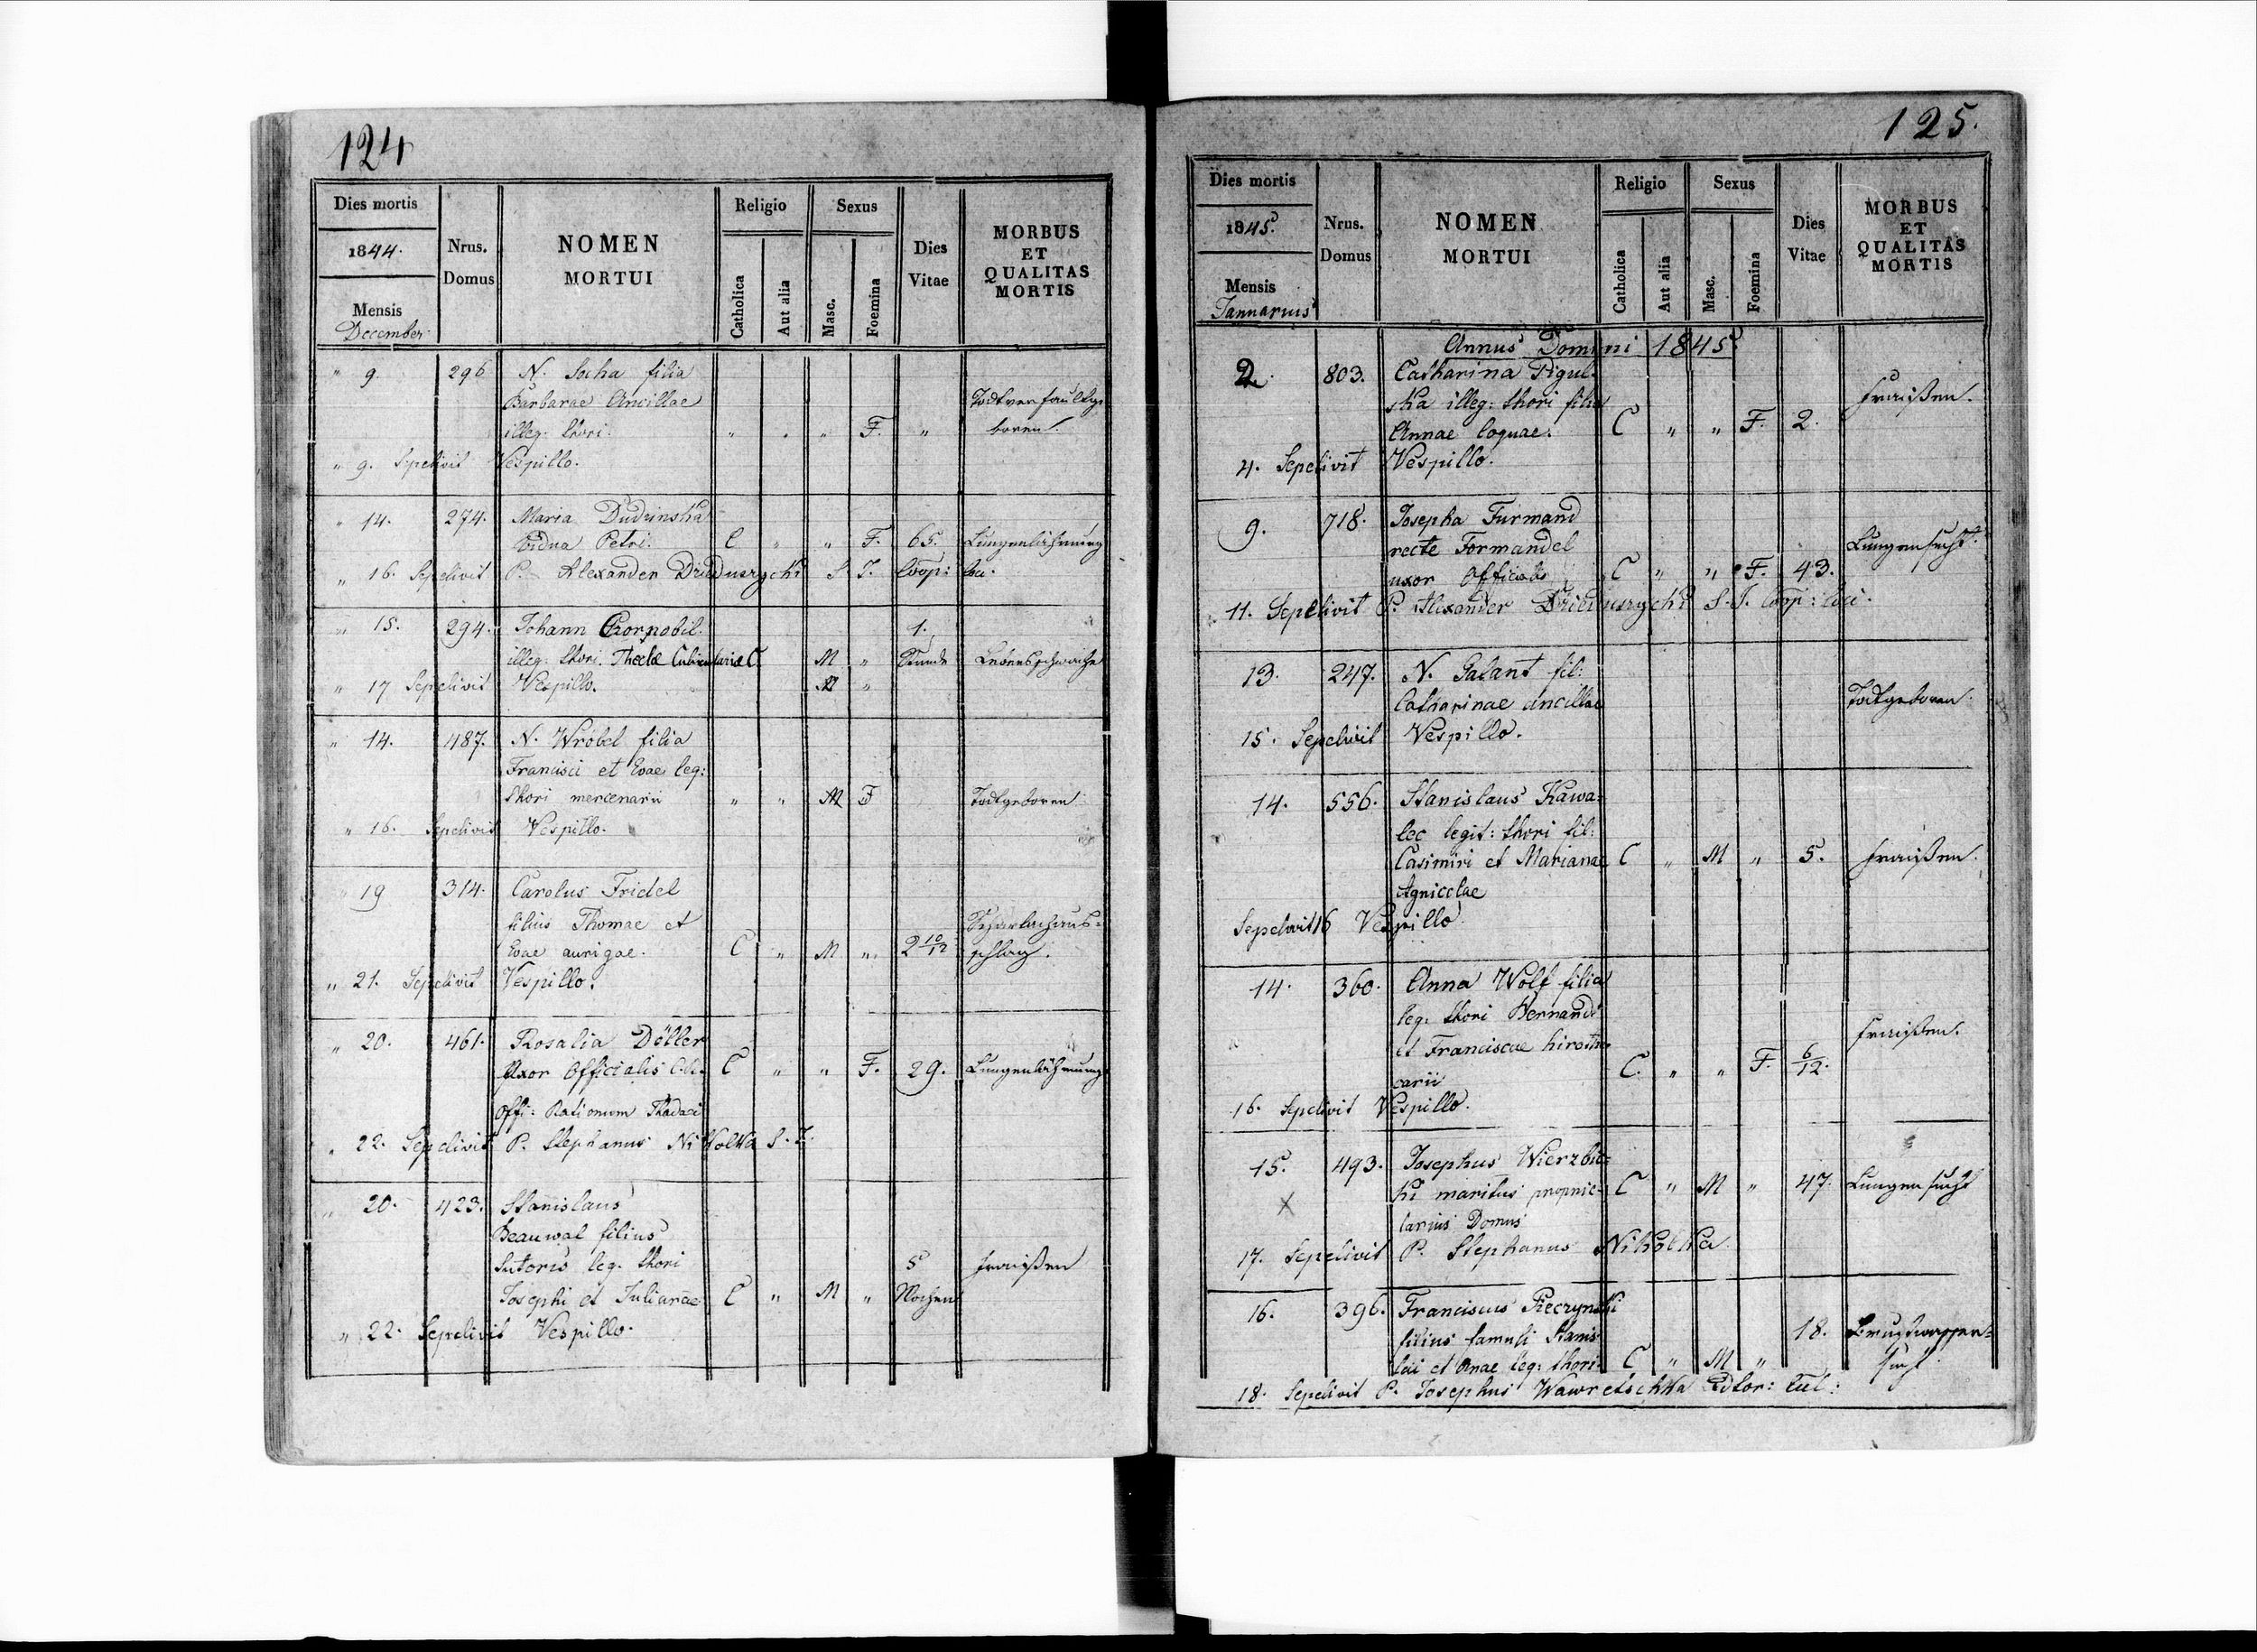 124
Dies mortis
1844.
Mensis
December
Nrus.
Domus
NOMEN
MORTUI
Religio
Catholica
Aut alia
Sexus
Masc.
Foemina
Dies
Vitae
MORBUS
ET
QUALITAS
MORTIS
" 9. 296 N. Socha filia
Barbarae Ancillae Todtverfaultge
illeg. thori. " " " F. " boren.
" 9. Sepelivit Vespillo.
" 14. 274. Maria Dudzinska
Vidua Petri. C " " F. 65. Lungenlähmung
" 16. Sepelivit P. Alexander Dzieduszycki S. J. Coop: loci.
" 15. 294. Johann Czornobil. 1.
illeg: thori. Theclae Cubiculariae C. M " Stunde Lebensschwäche
" 17 Sepelivit Vespillo. M "
" 14. 487. N. Wróbel filia
Francisci et Evae leg:
thori mercenarii " " M F Todtgeboren
" 16. Sepelivit Vespillo.
" 19 314. Carolus Fridel
filius Thomae et Scharlachaus=
Evae aurigae. C " M " 2 10/12 schlag.
" 21. Sepelivit Vespillo.
" 20. 461. Rosalia Döller
Uxor Officialis C. R. C " " F. 29. Lungenlähmung
Offi: Rationum Thadaei
" 22. Sepelivit P. Stephanus Nikolka S. J.
" 20. 423. Stanislaus
Beauwal filius
Sutoris leg. thori 5 Fraißen
Josephi et Julianae C " M " Wochen
" 22. Sepelivit Vespillo.
125.
Dies mortis
1845.
Mensis
Januarius
Nrus.
Domus
NOMEN
MORTUI
Religio
Catholica
Aut alia
Sexus
Masc.
Foemina
Dies
Vitae
MORBUS
ET
QUALITAS
MORTIS
Annus Domini 1845
2. 803. Catharina Pigul=
ska illeg: thori filia Fraißen.
Annae coquae. C " " F. 2.
4. Sepelivit Vespillo.
9. 718. Josepha Furmand
recte Formandel Lungensucht.
uxor Officialis C " " F. 43.
11. Sepelivit P. Alexander Dzieduszycki S. J. Coop: loci.
13. 247. N. Galant fil:
Catharinae ancillae Todtgeboren.
15. Sepelivit Vespillo.
14. 556. Stanislaus Kawa=
lec legit: thori fil:
Casimiri et Marianae C " M " 5. Fraißen.
Agricolae
Sepelivit 16 Vespillo
14. 360. Anna Wolf filia
leg: thori Bernandi Fraißen.
et Franciscae
carii C. " " F. 6/12.
16. Sepelivit Vespillo.
15. 493. Josephus Wierzbic=
ki maritus proprie= C " M " 47. Lungensucht
tarius Domus
17. Sepelivit P. Stephanus Nikolka
16. 396. Franciscus Pieczynski
filius famuli Stanis 18. Brustwasser=
lai et Anae leg: thori. C " M " sucht.
18. Sepelivit P. Josephus Wawretschka